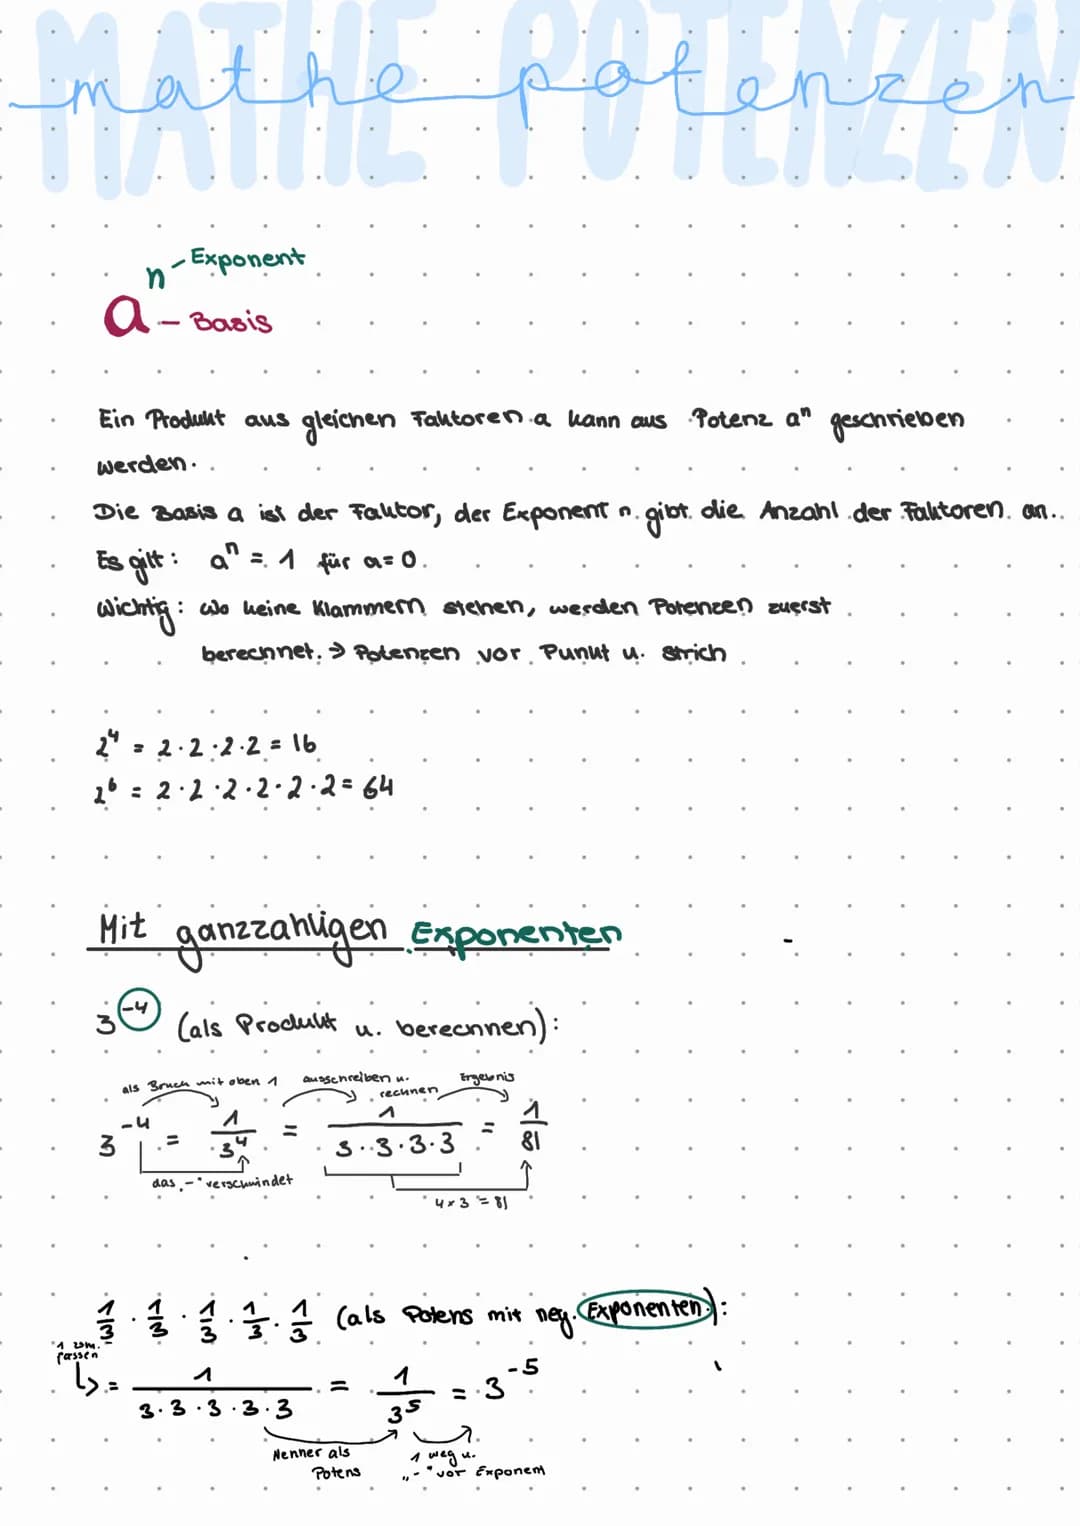 MATHE POTENZEN
mathe potenzen
n - Exponent
a - Basis
Ein Produkt aus gleichen Faktoren a kann aus Potenz aⁿ geschrieben
werden.
Die Basis a ist der Faktor, der Exponent n gibt die Anzahl der Faktoren an.
Es gilt: aⁿ = 1 für a = 0.
Wichtig: Wo keine Klammern stehen, werden Potenzen zuerst
berechnet. → Potenzen vor Punkt u. Strich
2⁴ = 2·2·2·2 = 16
2⁶ = 2·2·2·2·2·2 = 64
Mit ganzzahligen Exponenten
3⁻⁴ (als Produkt u. berechnen):
als Bruch mit oben 1 ausschreiben u. rechnen Ergebnis
3⁻⁴ = 1/3⁴ = 1/(3·3·3·3) = 1/81
das „-" verschwindet
4×3 = 81
1/3 · 1/3 · 1/3 · 1/3 · 1/3 (als Potens mit neg. Exponenten):
1 zsm.
fassen
↳ = 1/(3·3·3·3·3) = 1/3⁵ = 3⁻⁵
Nenner als 1 weg u.
Potens „-" vor Exponent